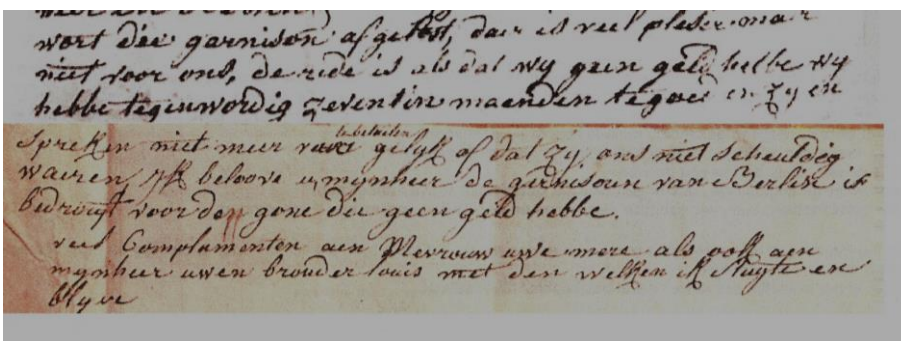 wort die garnison afgelost, daer is veel plesir maer
niet voor ons, de rede is als dat wy geen geld hebbe wy
hebbe tegenwordig zeventin maenden te goed en zy en
te betaelen
spreken niet meer van gelyk of dat zy ons niet scheuldig
waeren, ik beloove u, mynheer de garnisoun van Berlin is
bedrouft voor den gone die geen geld hebbe.
veel Complumenten aen Mevrouw uwe mere als ook aen
mynheer uwen brouder louis met den welken ik sluyte en
blyve